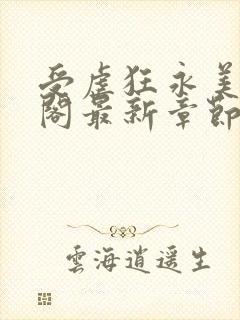 受虐狂永美
閣最新章節
雲海逍遥生